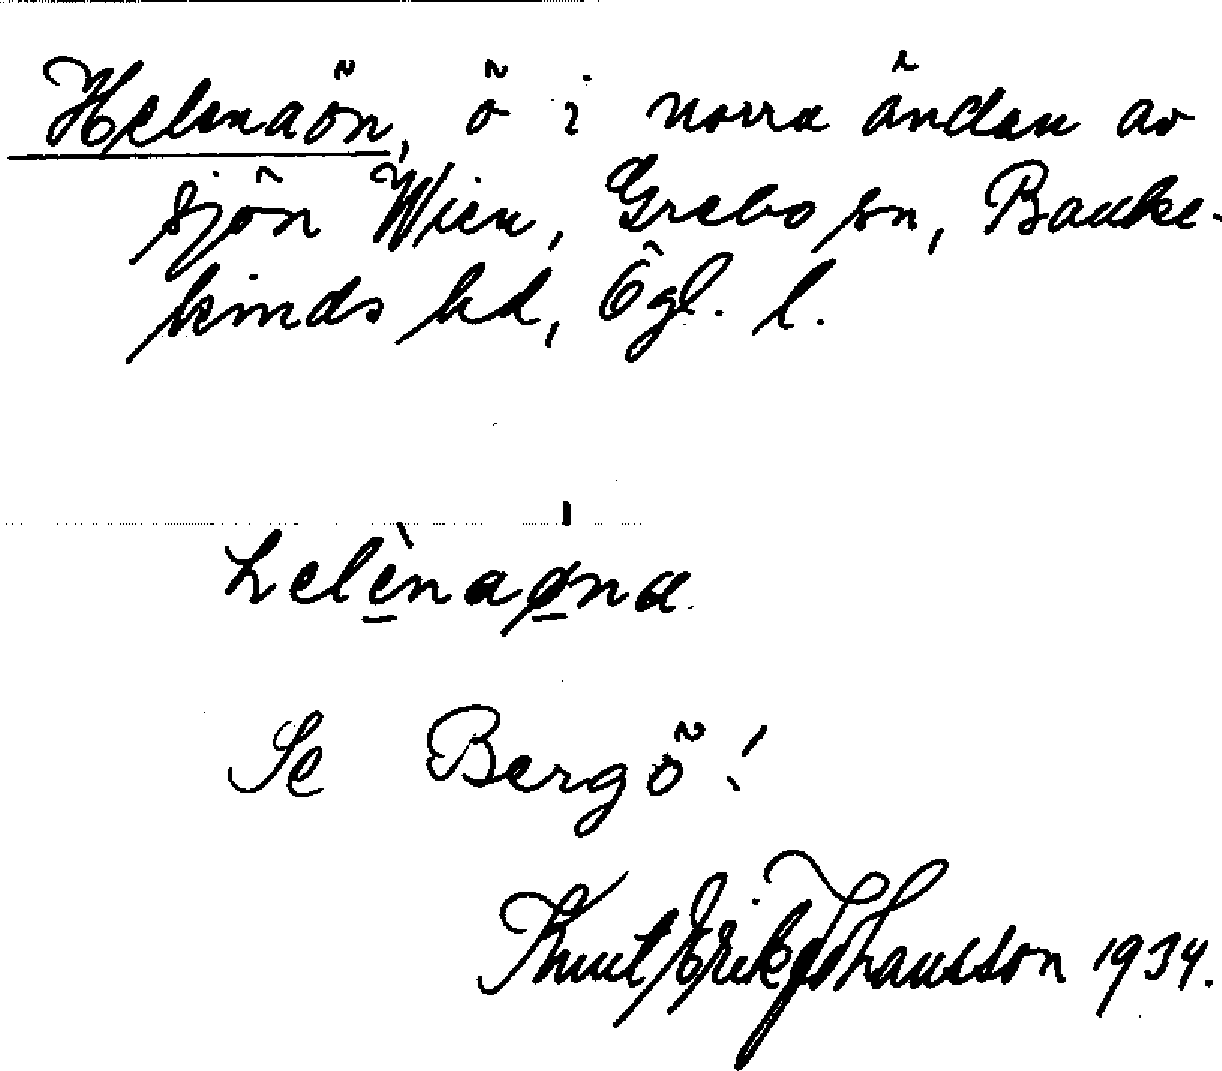 Helenaön, ö i norra ändan av
sjön Wien, Grebo sn, Banke-
kinds hd, Ögl. l.
helènaøna.
Se Bergö!
Knut Erik Johansson 1934.